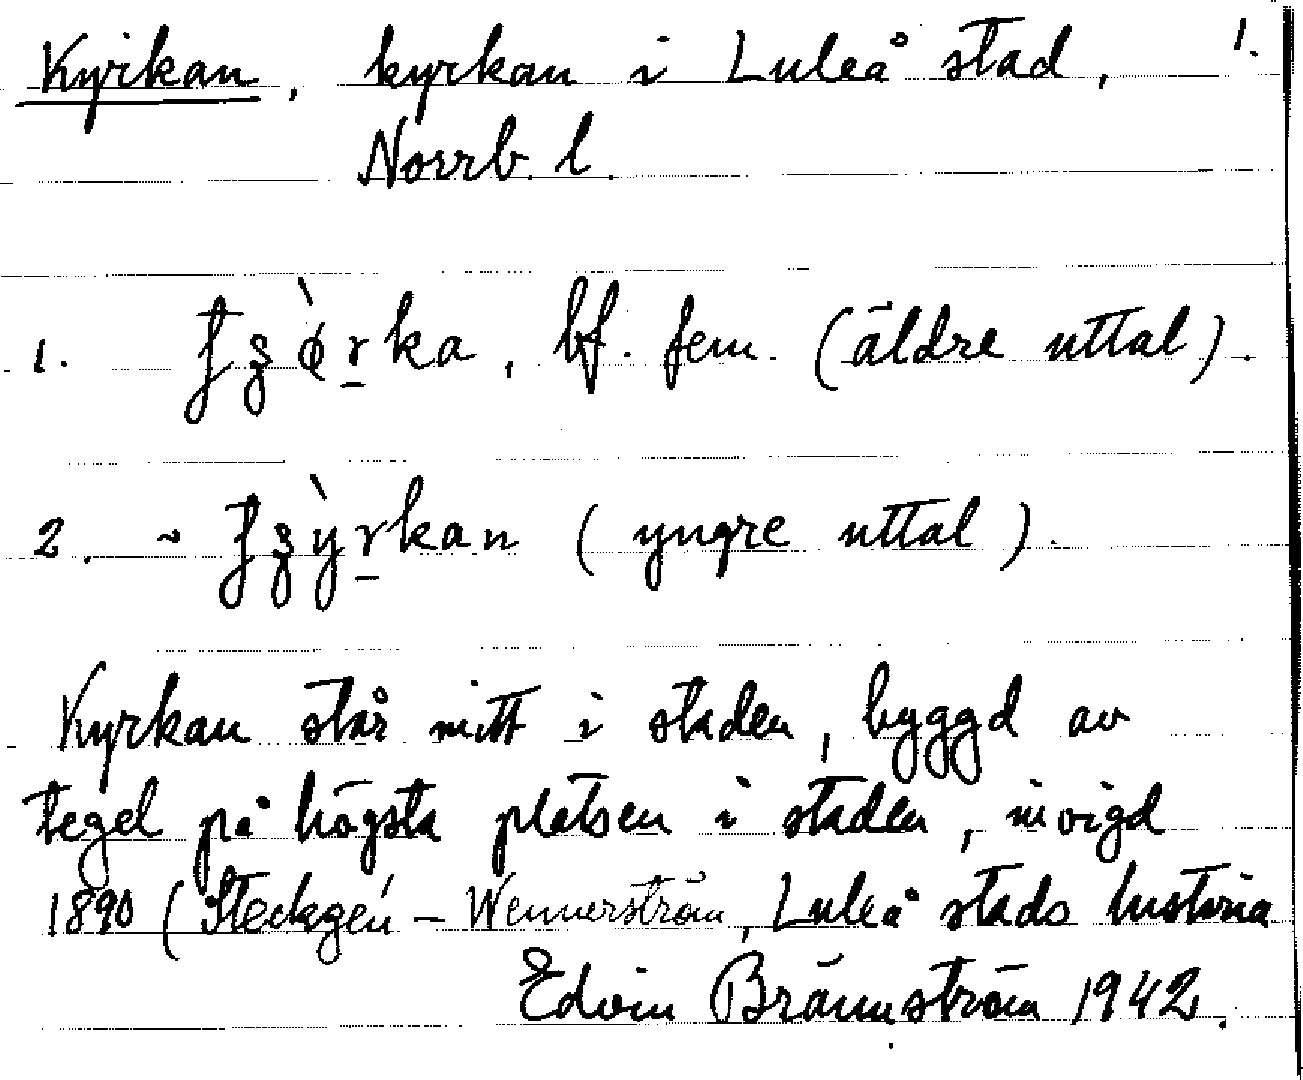 Kyrkan, kyrkan i Luleå stad, 1.
Norrb. l.
1. ʈʂø̀r̠ka, bf. fem. (äldre uttal).
2. ~ ʈʂỳr̠kan (yngre uttal).
Kyrkan står mitt i staden, byggd av
tegel på högsta platsen i staden, invigd
1890 (Steckzén – Wennerström, Luleå stads historia
Edvin Brännström 1942.